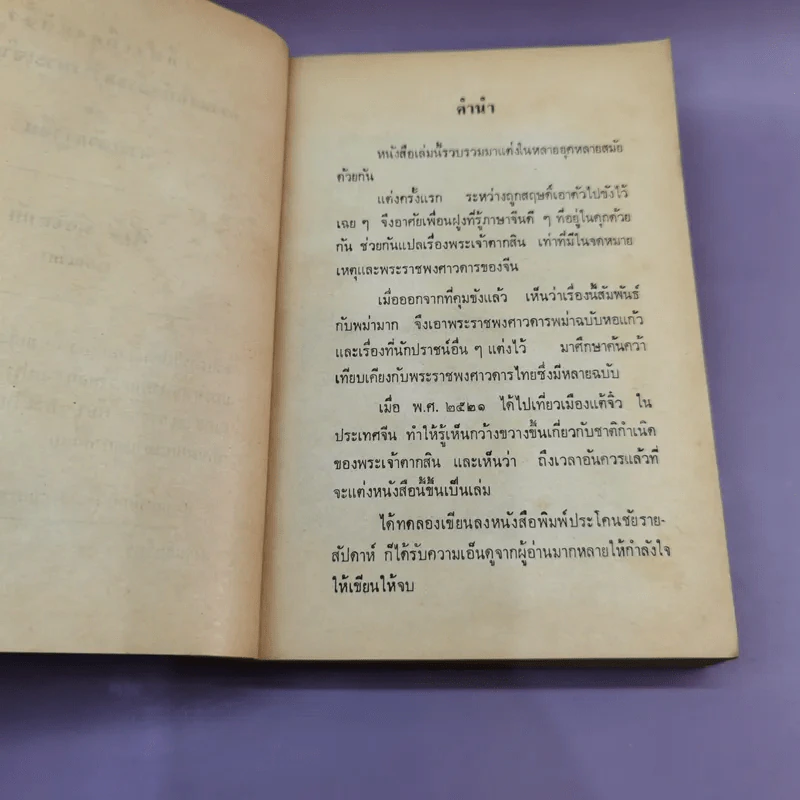 คำนำ
หนังสือเล่มนี้รวบรวมมาแต่งในหลายยุคหลายสมัย
ด้วยกัน
แต่งครั้งแรก ระหว่างถูกสฤษดิ์เอาตัวไปขังไว้
เฉย ๆ จึงอาศัยเพื่อนฝูงที่รู้ภาษาจีนดี ๆ ที่อยู่ในคุกด้วย
กัน ช่วยกันแปลเรื่องพระเจ้าตากสิน เท่าที่มีในจดหมาย
เหตุและพระราชพงศาวดารของจีน
เมื่อออกจากที่คุมขังแล้ว เห็นว่าเรื่องนี้สัมพันธ์
กับพม่ามาก จึงเอาพระราชพงศาวดารพม่าฉบับหอแก้ว
และเรื่องที่นักปราชน์อื่น ๆ แต่งไว้ มาศึกษาค้นคว้า
เทียบเคียงกับพระราชพงศาวดารไทยซึ่งมีหลายฉบับ
เมื่อ พ.ศ. ๒๕๒๑ ได้ไปเที่ยวเมืองแต้จิ๋ว ใน
ประเทศจีน ทำให้รู้เห็นกว้างขวางขึ้นเกี่ยวกับชาติกำเนิด
ของพระเจ้าตากสิน และเห็นว่า ถึงเวลาอันควรแล้วที่
จะแต่งหนังสือนี้ขึ้นเป็นเล่ม
ได้ทดลองเขียนลงหนังสือพิมพ์ประโคนชัยราย-
สัปดาห์ ก็ได้รับความเอ็นดูจากผู้อ่านมากหลายให้กำลังใจ
ให้เขียนให้จบ